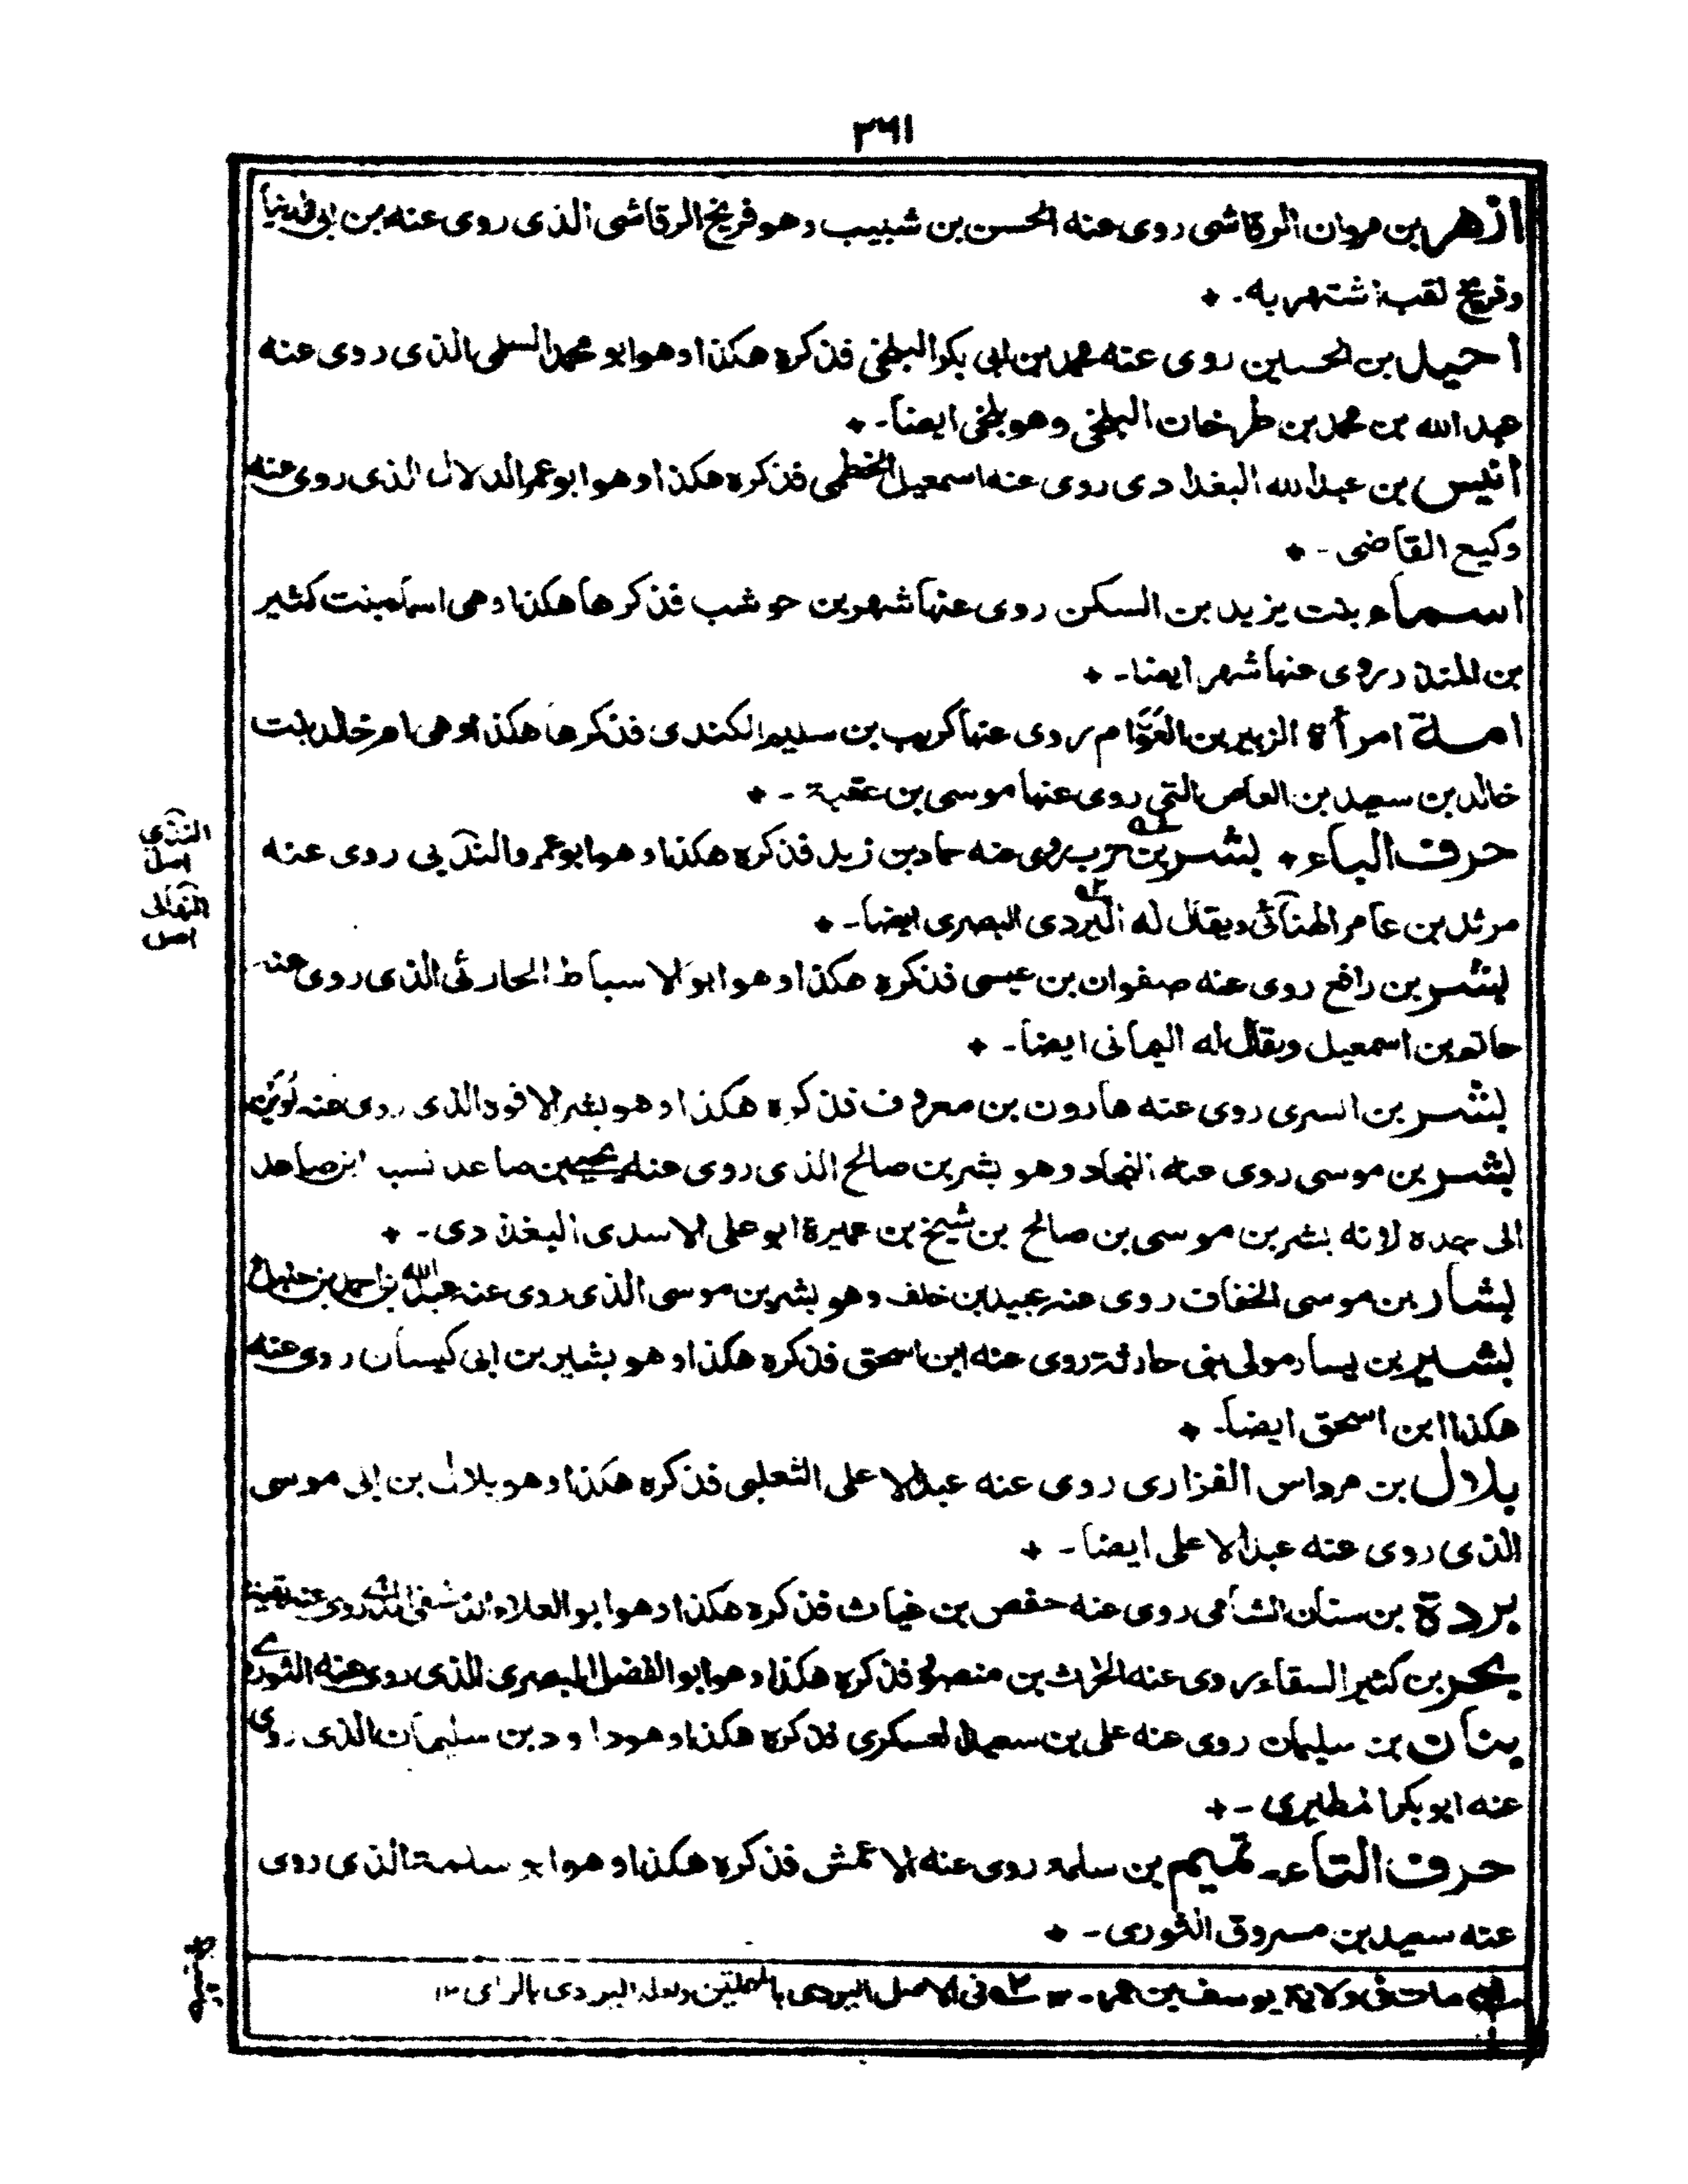 ٣٦١
ازهر بن مروان الرقاشى روى عنه الحسن بن شبيب وهو فريخ الرقاشى الذى روى عنه بن ابى الدنيا
وفريخ لقب اشتهر به - +
احيل بن الحسين روى عنه محمد بن ابى بكر البلخى فذكره هكذا وهو ابو محمد السلمى الذى روى عنه
عبد الله بن محمد بن طرخان البلخى وهو بلخى ايضا - +
انيس بن عبد الله البغدادى روى عنه اسمعيل الخطمى فذكره هكذا وهو ابو عمر الدلال الذى روى عنه
وكيع القاضى - +
اسماء بنت يزيد بن السكن روى عنها شهر بن حوشب فذكرها هكذا وهى اسماء بنت كثير
بن المنذر روى عنها شهر ايضا - +
امة امرأة الزبير بن العَوَّام روى عنها كريب بن سليم الكندى فذكرها هكذا وهى ام خالد بنت
خالد بن سعيد بن العاص التى روى عنها موسى بن عقبة - +
حرف الباء + بشر بن حرب روى عنه حماد بن زيد فذكره هكذا وهو ابو عمرو الندبى روى عنه
مرثد بن عامر الهنائى ويقال له البردى البصرى ايضا - +
بشر بن رافع روى عنه صفوان بن عيسى فذكره هكذا وهو ابو الاسباط الحارثى الذى روى عنه
حاتم بن اسمعيل ويقال له اليمانى ايضا - +
بشر بن السرى روى عنه هارون بن معروف فذكره هكذا وهو بشر الافوه الذى روى عنه لُوَيْن
بشر بن موسى روى عنه النجاد وهو بشر بن صالح الذى روى عنه يحيى بن صاعد نسب ابن صاعد
الى جده لانه بشر بن موسى بن صالح بن شيخ بن عميرة ابو على الاسدى البغدادى - +
بشار بن موسى الخفاف روى عنه عبيد بن خلف وهو بشر بن موسى الذى روى عنه عبد الله بن احمد بن حنبل
بشير بن يسار مولى بنى حارثة روى عنه ابن اسحق فذكره هكذا وهو بشير بن ابى كيسان روى عنه
هكذا ابن اسحق ايضا - +
بلال بن مرداس الفزارى روى عنه عبد الاعلى الثعلبى فذكره هكذا وهو بلال بن ابى موسى
الذى روى عنه عبد الاعلى ايضا - +
بردة بن سنان الشامى روى عنه حفص بن غياث فذكره هكذا وهو ابو العلاء الدمشقى الذى روى عنه بقية
بحر بن كثير السقاء روى عنه الحرث بن منصور فذكره هكذا وهو ابو الفضل البصرى الذى روى عنه الثورى
بنان بن سليمان روى عنه على بن سعيد العسكرى فذكره هكذا وهو داود بن سليمان الذى روى
عنه ابو بكر المطيرى - +
حرف التاء - تميم بن سلمة روى عنه الاعمش فذكره هكذا وهو ابو سلمة الذى روى
عنه سعيد بن مسروق الثورى - +
له مات فى ولاية يوسف بن عمر - ١٢ ٢ه فى الاصل البردى بالمهملتين ولعله البردى بالراى ١٢
الندبى
اصل
اصل